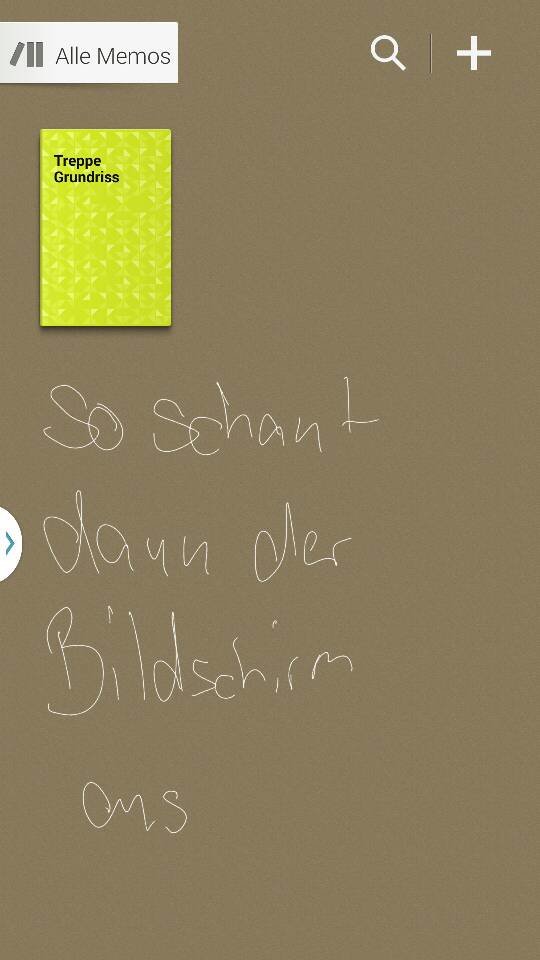 Alle Memos
Treppe
Grundriss
So schaut
dann der
Bildschirm
aus